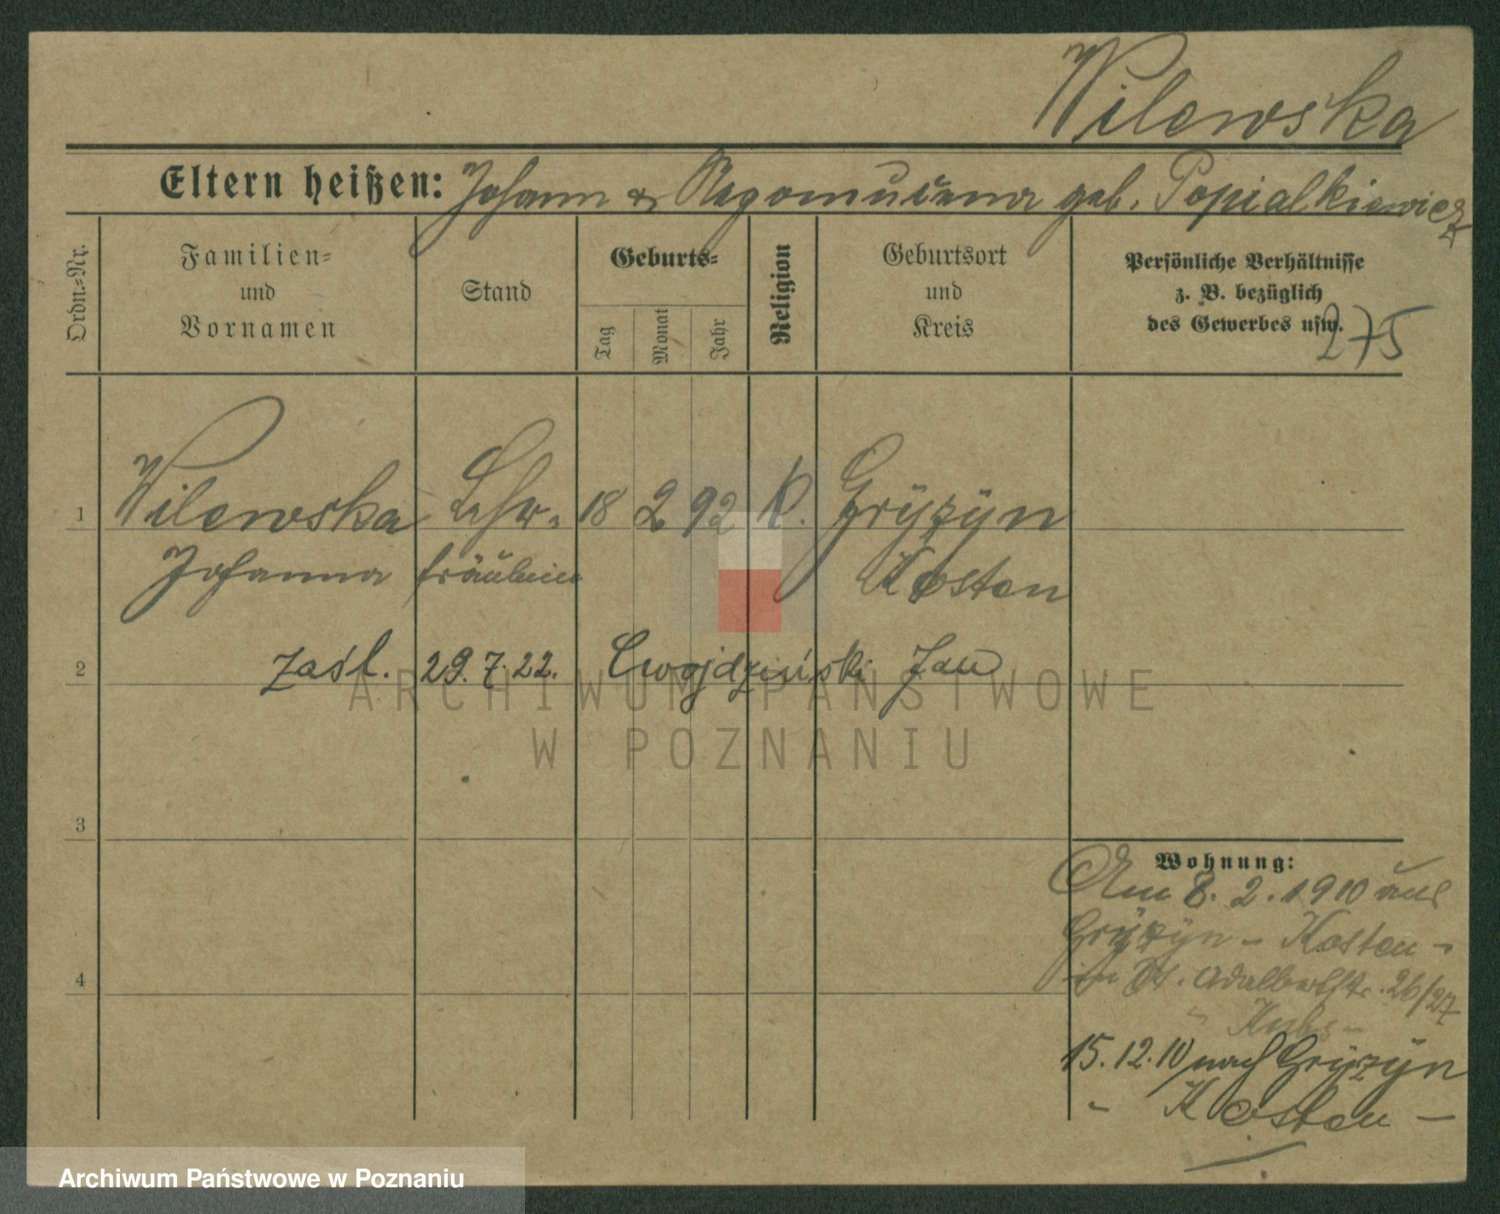 Wilewska
Eltern heißen: Johann & geb. Popialkiewicz
Ordn.-Nr.
Familien-
und
Vornamen
Stand
Geburts-
Tag
Monat
Jahr
Religion
Geburtsort
und
Kreis
Persönliche Verhältnisse
z. B. bezüglich
des Gewerbes usw.
275
1 Wilewska Lehr- 18 2 92 K. Gryzyn
Johanna fräulein Kosten
2 zaśl. 29.7.22. Cwojdziński Jan
ARCHIWUM PAŃSTWOWE
W POZNANIU
3
Wohnung:
Am 8. 2. 1910 aus
Gryzyn - Kosten -
4
in St. Adalbertstr. 26/27
15.12.10 nach Gryzyn
- Kosten -
Archiwum Państwowe w Poznaniu